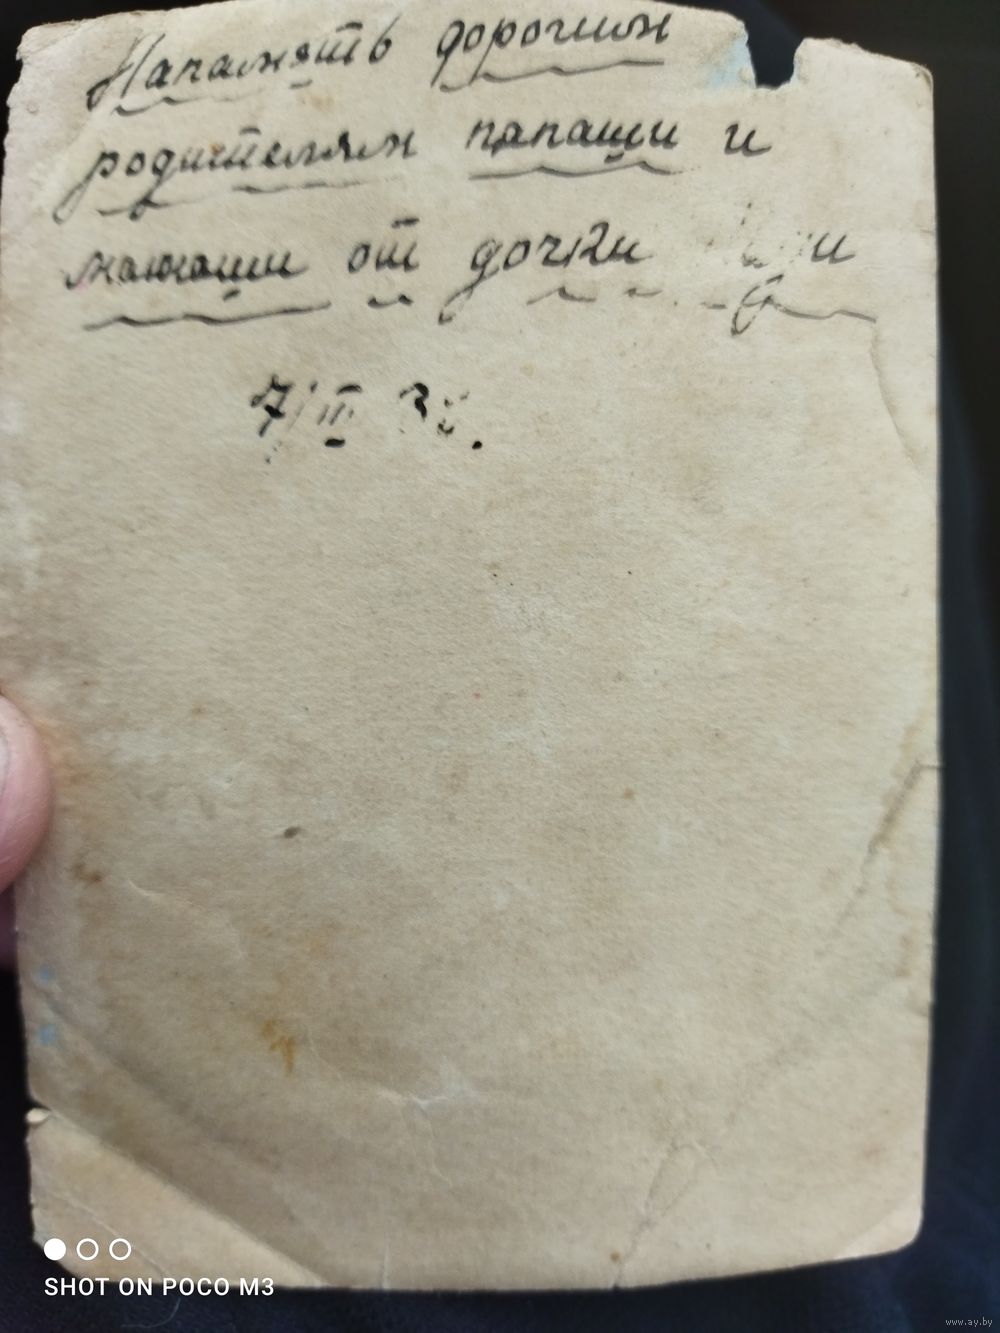 Напамять дорогим
родителям папаши и
мамаши от дочки
7/III
SHOT ON POCO M3
www.ay.by